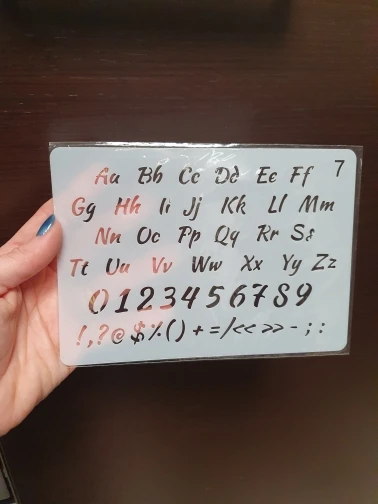 7
Aa Bb Cc Dd Ee Ff
Gg Hh Ii Jj Kk Ll Mm
Nn Oo Pp Qq Rr Ss
Tt Uu Vv Ww Xx Yy Zz
0123456789
!,?@$%()+=/<<>>-;: